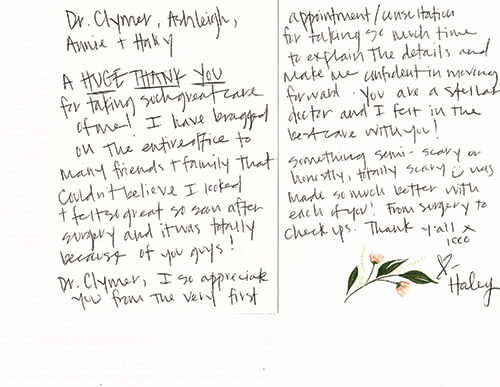 Dr. Clymer, Ashleigh,
Annie + Haley
A HUGE THANK YOU
for taking such great care
of me! I have bragged
on the entire office to
many friends + family that
couldn't believe I looked
+ felt so great so soon after
surgery and it was totally
because of you guys!
Dr. Clymer, I so appreciate
you from the very first
appointment/consultation
for taking so much time
to explain the details and
make me confident in moving
forward. You are a stellar
doctor and I felt in the
best care with you!
Something semi-scary or
honestly, totally scary was
made so much better with
each of you! From surgery to
check ups. Thank y'all x
1000
Haley